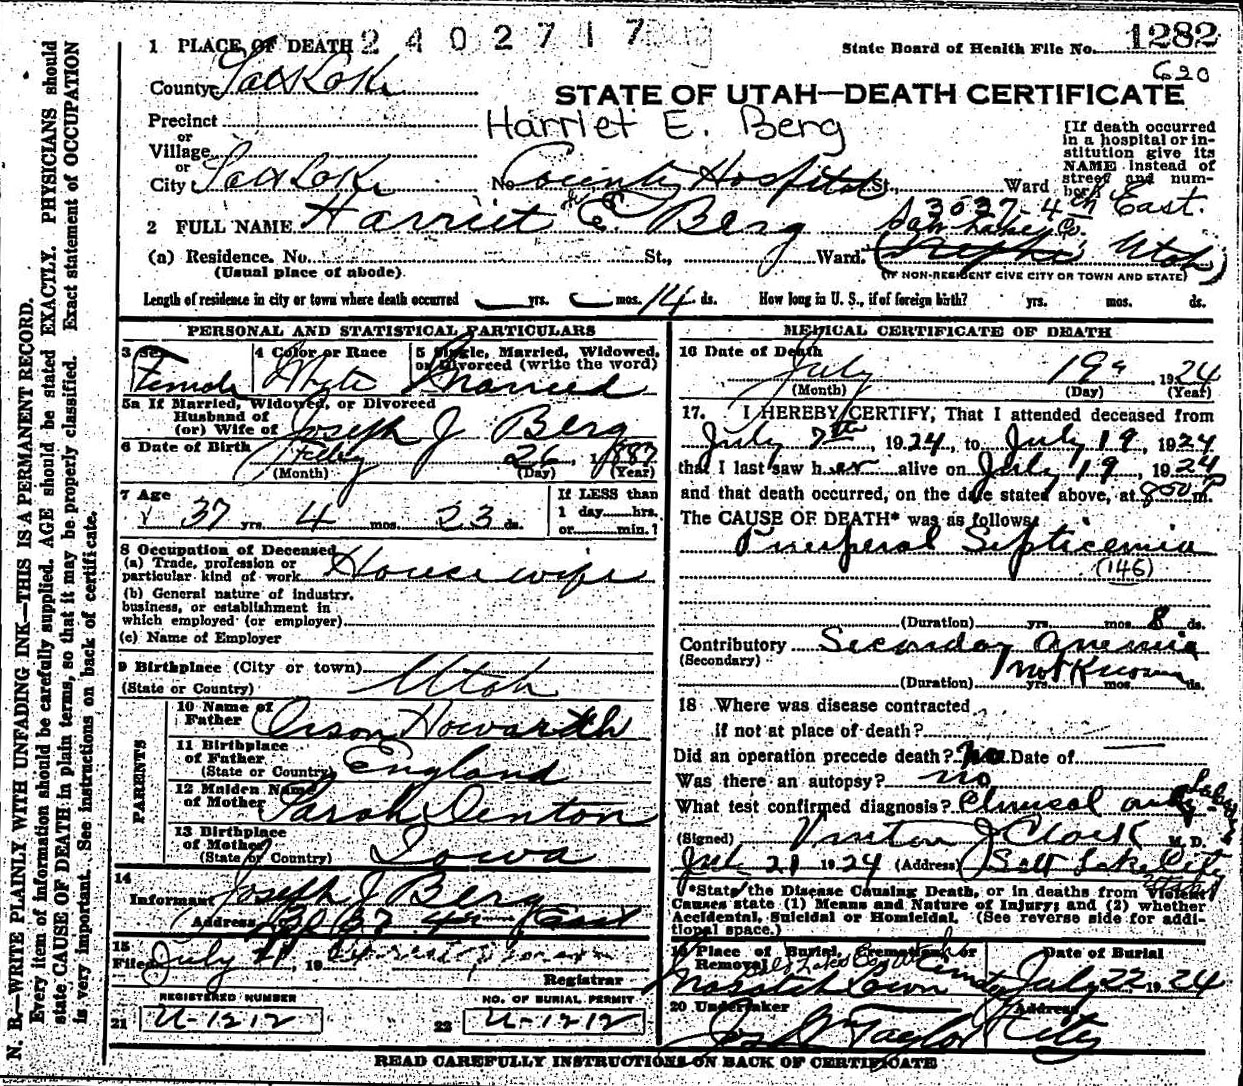 2402717
1 PLACE OF DEATH
State Board of Health File No. 1282
620
County Salt Lake
STATE OF UTAH—DEATH CERTIFICATE
Precinct
Harriet E. Berg
or
Village
or
City Salt Lake No. County Hospital St., Ward
[If death occurred
in a hospital or in-
stitution give its
NAME instead of
street and num-
ber.
3037-4th East.
2 FULL NAME Harriet E. Berg
Salt Lake Co.
(a) Residence. No. St., Ward. (Nephi Utah)
(Usual place of abode)
(IF NON-RESIDENT GIVE CITY OR TOWN AND STATE)
Length of residence in city or town where death occurred — yrs. — mos. 14 ds. How long in U. S., if of foreign birth? yrs. mos. ds.
PERSONAL AND STATISTICAL PARTICULARS
3 Sex 4 Color or Race 5 Single, Married, Widowed,
or Divorced (write the word)
Female Whyte Married
5a If Married, Widowed, or Divorced
Husband of
(or) Wife of Joseph J Berg
6 Date of Birth Feby 26, 1887
(Month) (Day) (Year)
7 Age
37 yrs. 4 mos. 23 ds.
If LESS than
1 day hrs.
or min.?
8 Occupation of Deceased
(a) Trade, profession or
particular kind of work Housewife
(b) General nature of industry,
business, or establishment in
which employed (or employer)
(c) Name of Employer
9 Birthplace (City or town)
(State or Country) Utah
PARENTS
10 Name of
Father Orson Howarth
11 Birthplace
of Father
(State or Country) England
12 Maiden Name
of Mother Sarah Denton
13 Birthplace
of Mother
(State or Country) Iowa
14
Informant Joseph J Berg
Address 3037 4th East
15
Filed July 21, 19
Registrar
REGISTERED NUMBER
21 U-1212
NO. OF BURIAL PERMIT
22 U-1212
MEDICAL CERTIFICATE OF DEATH
16 Date of Death
July 19 1924
(Month) (Day) (Year)
17. I HEREBY CERTIFY, That I attended deceased from
July 7th, 1924, to July 19, 1924
that I last saw her alive on July 19, 1924
and that death occurred, on the date stated above, at 8 00 P m.
The CAUSE OF DEATH* was as follows:
Puerperal Septicemia
(146)
(Duration) yrs. mos. 8 ds.
Contributory Secondary Anemia
(Secondary)
not Known
(Duration) yrs. mos. ds.
18 Where was disease contracted
if not at place of death?
Did an operation precede death? No Date of
Was there an autopsy? no
What test confirmed diagnosis? Clinical and Labor
(Signed) J Clark M. D.
July 21 1924 (Address) Salt Lake City
*State the Disease Causing Death, or in deaths from Violent
Causes state (1) Means and Nature of Injury; and (2) whether
Accidental, Suicidal or Homicidal. (See reverse side for addi-
tional space.)
19 Place of Burial, Cremation or
Removal
Date of Burial
July 22 1924
20 Undertaker Address
Taylor City
READ CAREFULLY INSTRUCTIONS ON BACK OF CERTIFICATE
N. B.—WRITE PLAINLY, WITH UNFADING INK—THIS IS A PERMANENT RECORD.
Every item of information should be carefully supplied. AGE should be stated EXACTLY. PHYSICIANS should
state CAUSE OF DEATH in plain terms, so that it may be properly classified. Exact statement of OCCUPATION
is very important. See instructions on back of certificate.